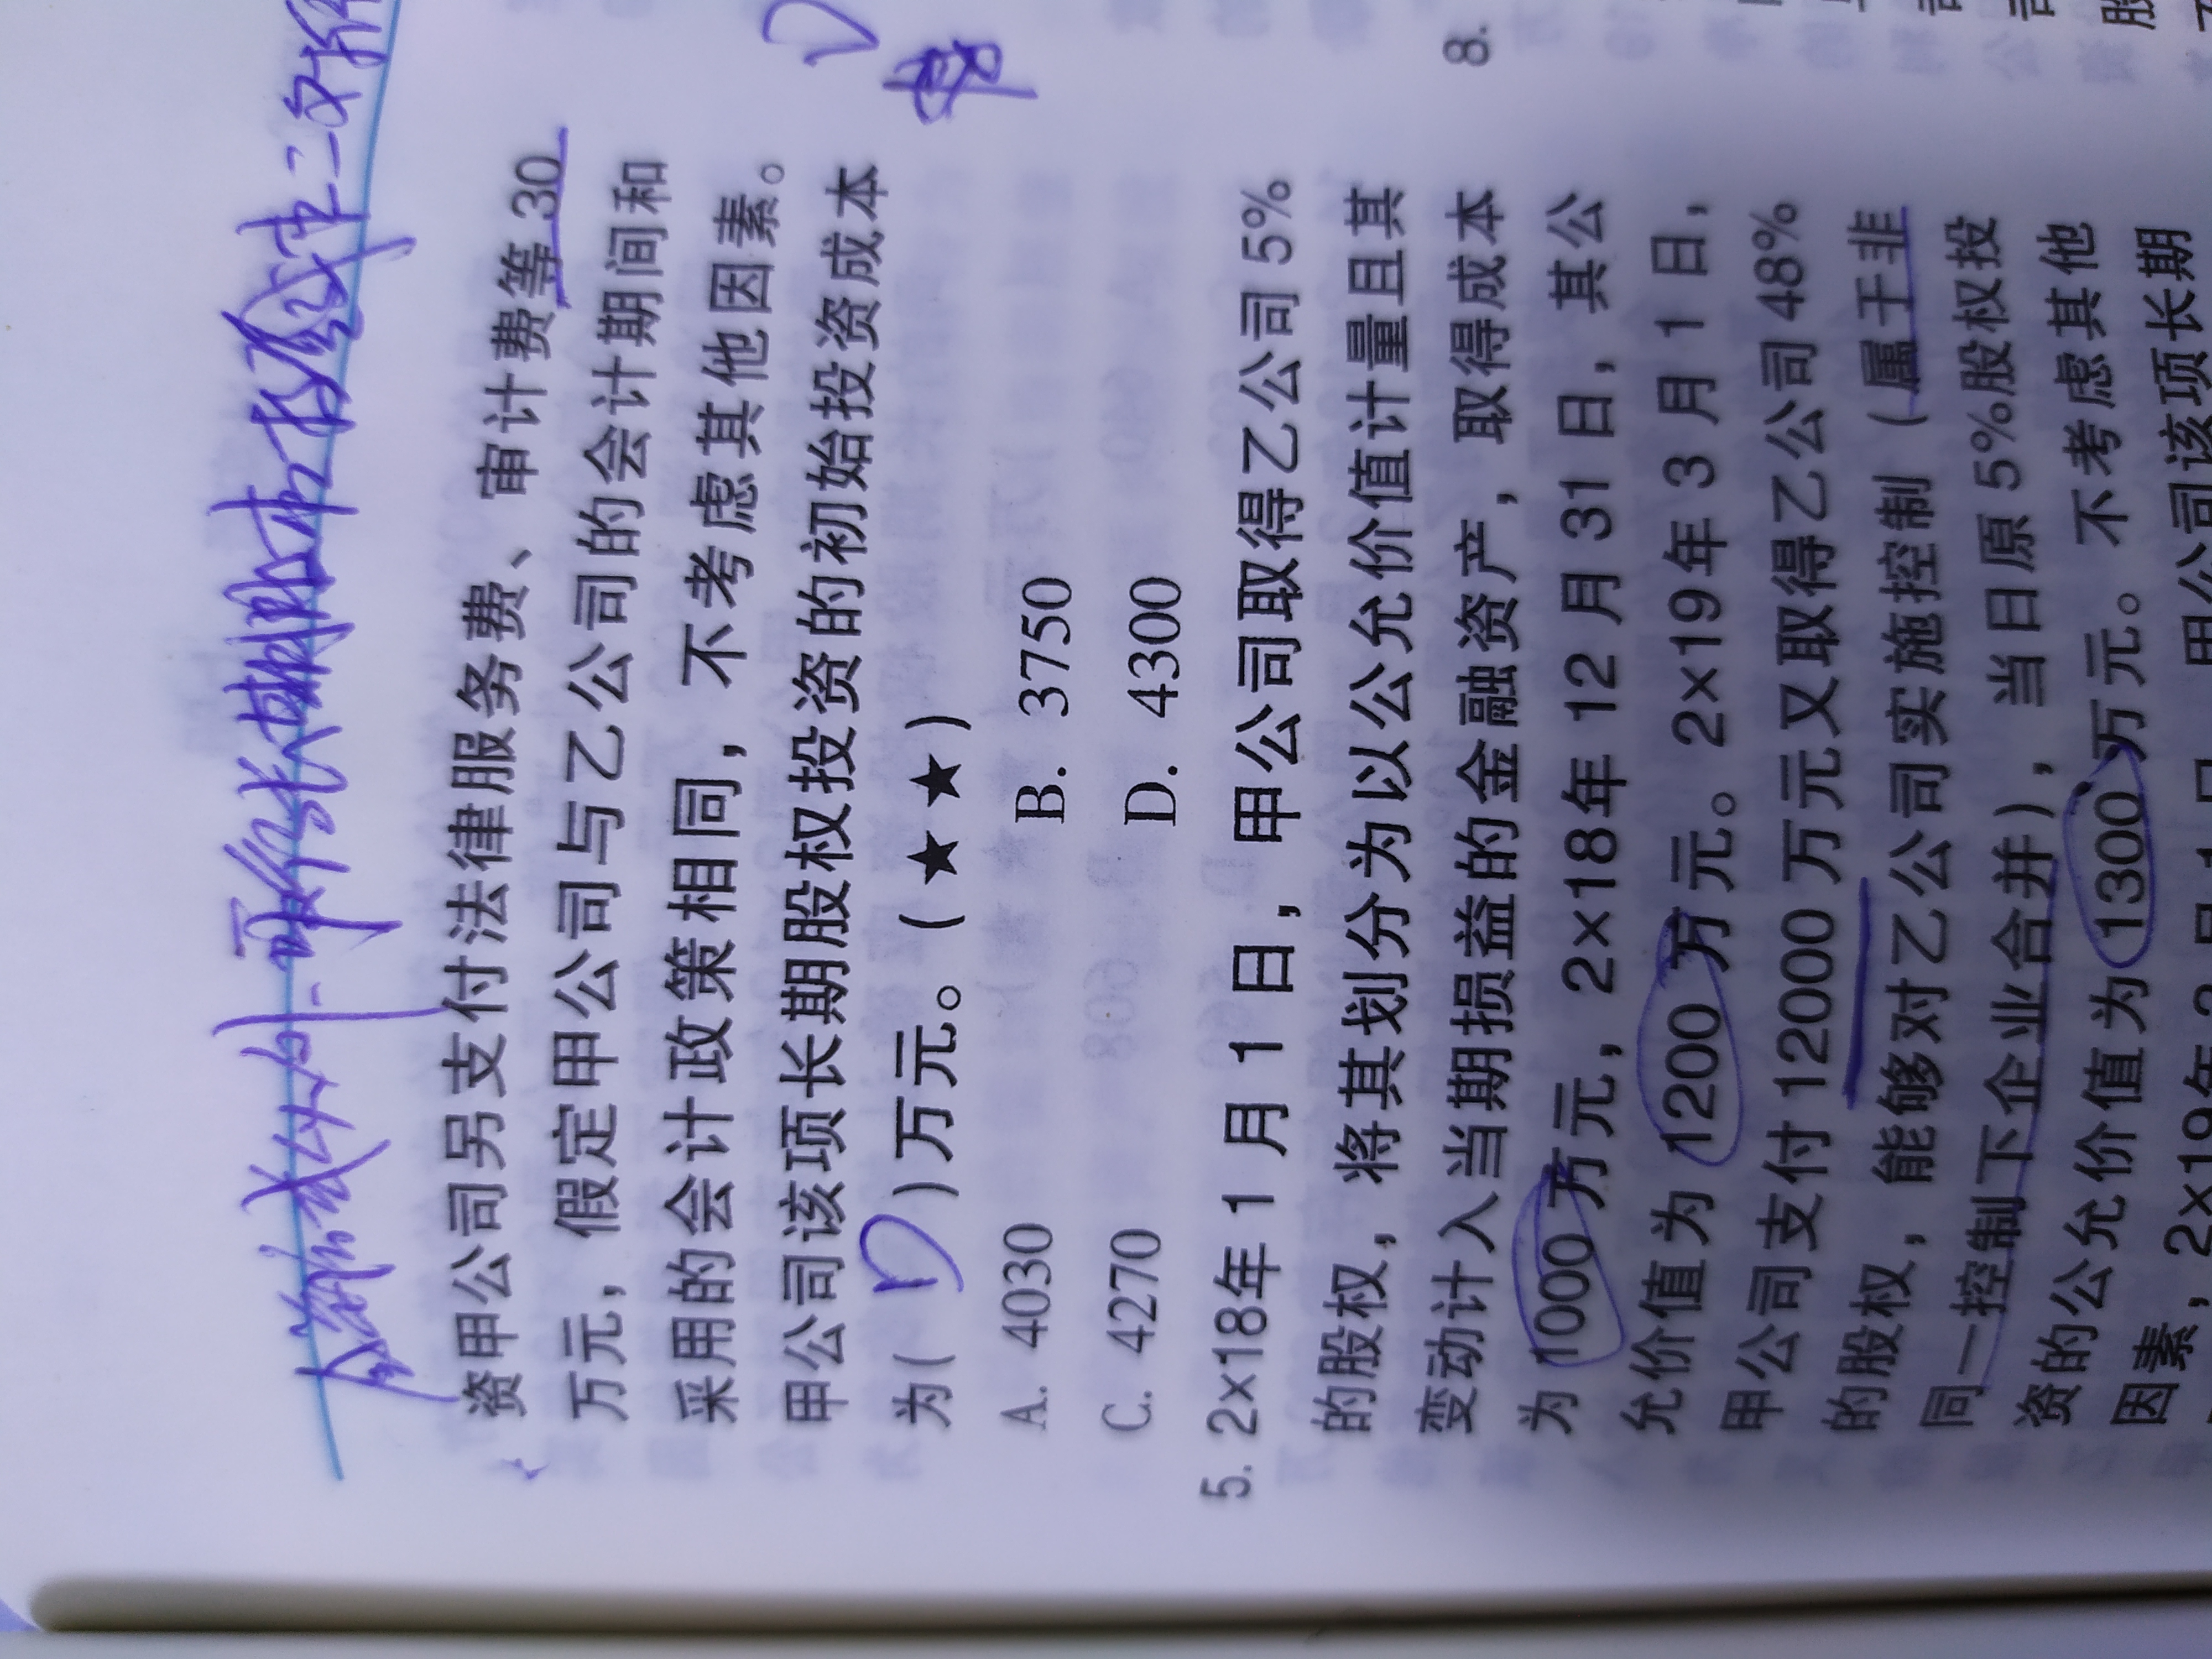 资甲公司另支付法律服务费、审计费等30
万元，假定甲公司与乙公司的会计期间和
采用的会计政策相同，不考虑其他因素。
甲公司该项长期股权投资的初始投资成本
为( D )万元。（★★）
A. 4030 B. 3750
C. 4270 D. 4300
5. 2×18年1月1日，甲公司取得乙公司5%
的股权，将其划分为以公允价值计量且其
变动计入当期损益的金融资产，取得成本
为1000万元，2×18年12月31日，其公
允价值为1200万元。2×19年3月1日，
甲公司支付12000万元又取得乙公司48%
的股权，能够对乙公司实施控制（属于非
同一控制下企业合并），当日原5%股权投
资的公允价值为1300万元。不考虑其他
因素，2×19年3月1日，甲公司该项长期
8.